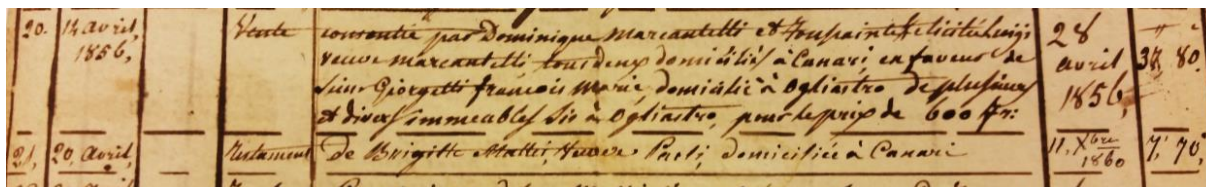 20. 14 avril, 1856, Vente consentie par Dominique Marcantelli et Toussainte Félicité Luigi 28
veuve Marcantelli tous deux domiciliés à Canari, en faveur de avril 37, 80.
Sieur Giorgetti françois Marie, domicilié à Ogliastro de plusieurs 1856,
et divers immeubles sis à Ogliastro, pour le prix de 600 fr:
21, 20, Avril, Testament De Brigitte Mattei Veuve Paoli, domiciliée à Canari 11, Xbre 1860 7, 70,